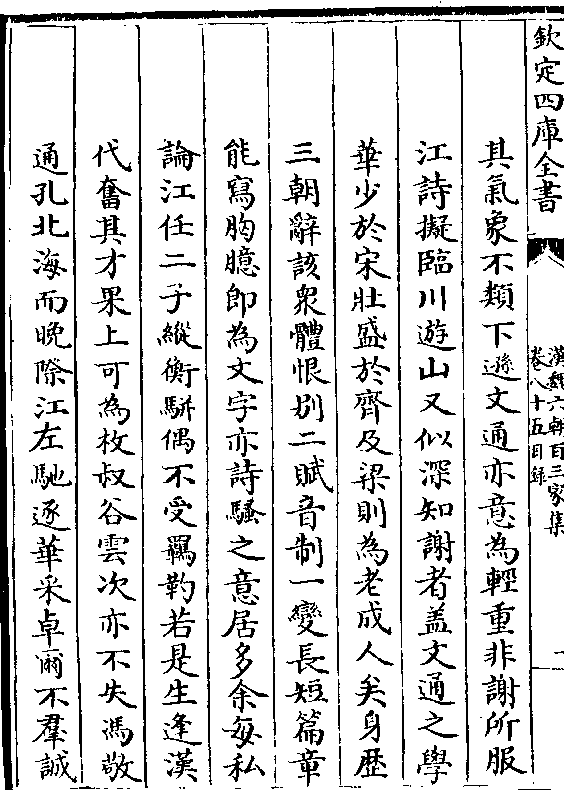 欽定四庫全書
漢魏六朝百三家集
卷八十五目錄
一
其氣象不類下遜文通亦意為輕重非謝所服
江詩擬臨川遊山又似深知謝者蓋文通之學
華少於宋壯盛於齊及梁則為老成人矣身歴
三朝辭該衆體恨别二賦音制一變長短篇章
能寫胸臆即為文字亦詩騷之意居多余每私
論江任二子縱衡駢偶不受羈靮若是生逢漢
代奮其才果上可為枚叔谷雲次亦不失馮敬
通孔北海而晚際江左馳逐華采卓爾不羣誠